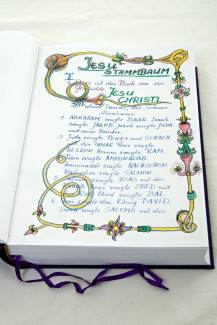 JESU
STAMMBAUM
1. Dies ist das Buch von der
JESU
CHRISTI
Davids, des Sohnes
Abrahams.
2 ABRAHAM zeugte ISAAK. Isaak
zeugte JAKOB. Jakob zeugte JUDA
und seine Brüder.
3 Juda zeugte PEREZ und SERACH
mit der TAMAR. Perez zeugte
HEZRON. Hezron zeugte RAM.
Ram zeugte AMMINADAB.
Amminadab zeugte NACHSCHON.
Nachschon zeugte SALMON.
zeugte BOAS mit der
zeugte OBED mit
Obed zeugte ISAI.
zeugte den König DAVID.
David zeugte SALOMO mit der